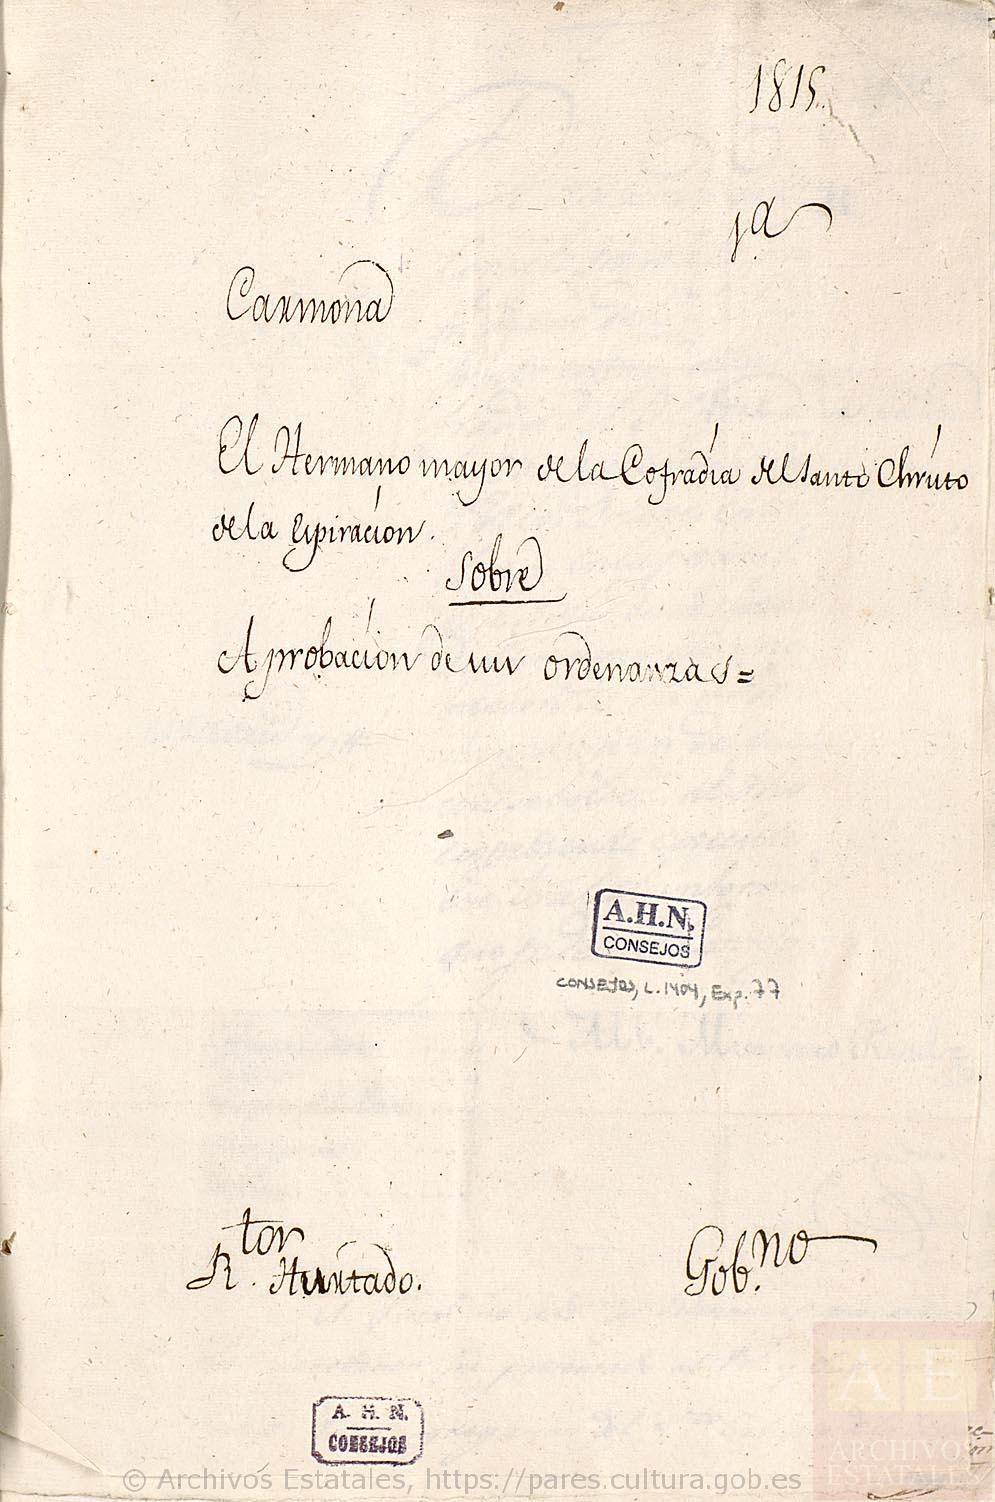 1815.
1ª
Carmona
El Hermano mayor de la Cofradía del Santo Christo
de la Espiración.
Sobre
Aprobación de sus ordenanzas=
A.H.N.
CONSEJOS
CONSEJOS, L.1404, Exp. 77
R.tor Hurtado.
Gob.no
A. H. N.
CONSEJOS
AE
ARCHIVOS
ESTATALES
© Archivos Estatales, https://pares.cultura.gob.es